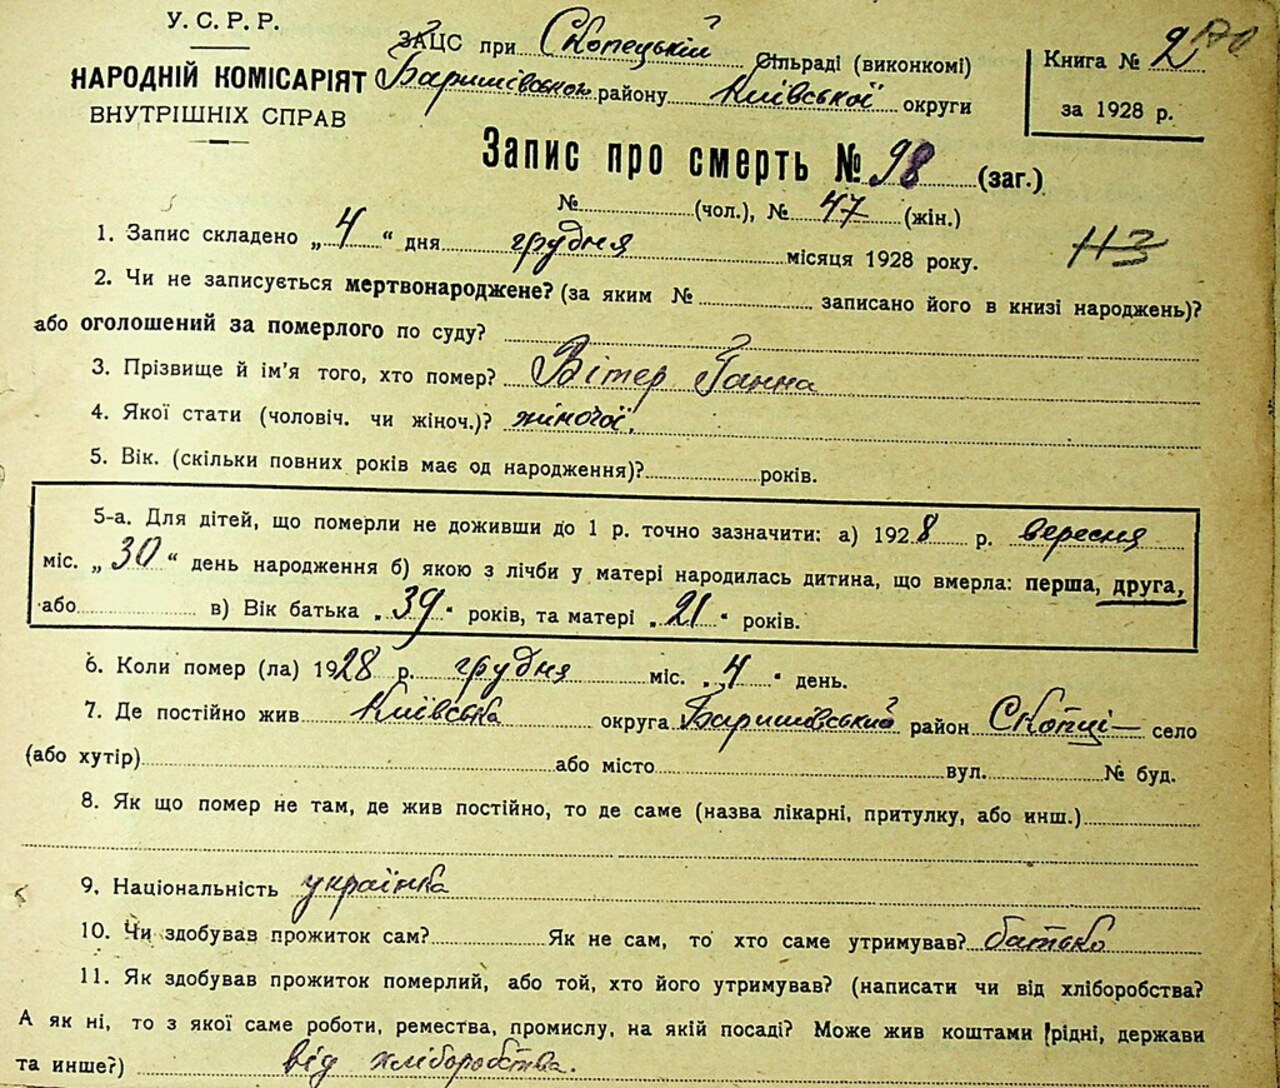 У. С. Р. Р.
НАРОДНІЙ КОМІСАРІЯТ
ВНУТРІШНІХ СПРАВ
ЗАЦС при Скопецькій Сільраді (виконкомі)
Баришівському району Київської округи
Книга № 2 170
за 1928 р.
Запис про смерть № 98 (заг.)
№ (чол.), № 47 (жін.)
113
1. Запис складено „ 4 “ дня грудня місяця 1928 року.
2. Чи не записується мертвонароджене? (за яким № записано його в книзі народжень)?
або оголошений за померлого по суду?
3. Прізвище й ім'я того, хто помер? Вітер Ганна
4. Якої стати (чоловіч. чи жіноч.)? жіночої.
5. Вік. (скільки повних років має од народження)? років.
5-а. Для дітей, що померли не доживши до 1 р. точно зазначити: а) 1928 р. вересня
міс. „ 30 “ день народження б) якою з лічби у матері народилась дитина, що вмерла: перша, друга,
або в) Вік батька „ 39 “ років, та матері „ 21 “ років.
6. Коли помер (ла) 1928 р. грудня міс. „ 4 “ день.
7. Де постійно жив Київська округа Баришівський район Скопці — село
(або хутір) або місто вул. № буд.
8. Як що помер не там, де жив постійно, то де саме (назва лікарні, притулку, або инш.)
9. Національність українка
10. Чи здобував прожиток сам? Як не сам, то хто саме утримував? батько
11. Як здобував прожиток померлий, або той, хто його утримував? (написати чи від хліборобства?
А як ні, то з якої саме роботи, ремества, промислу, на якій посаді? Може жив коштами (рідні, держави
та инше?) від хліборобства.